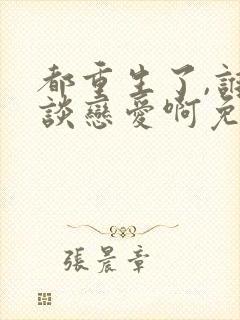 都重生了,誰
談戀愛啊免
張晨章